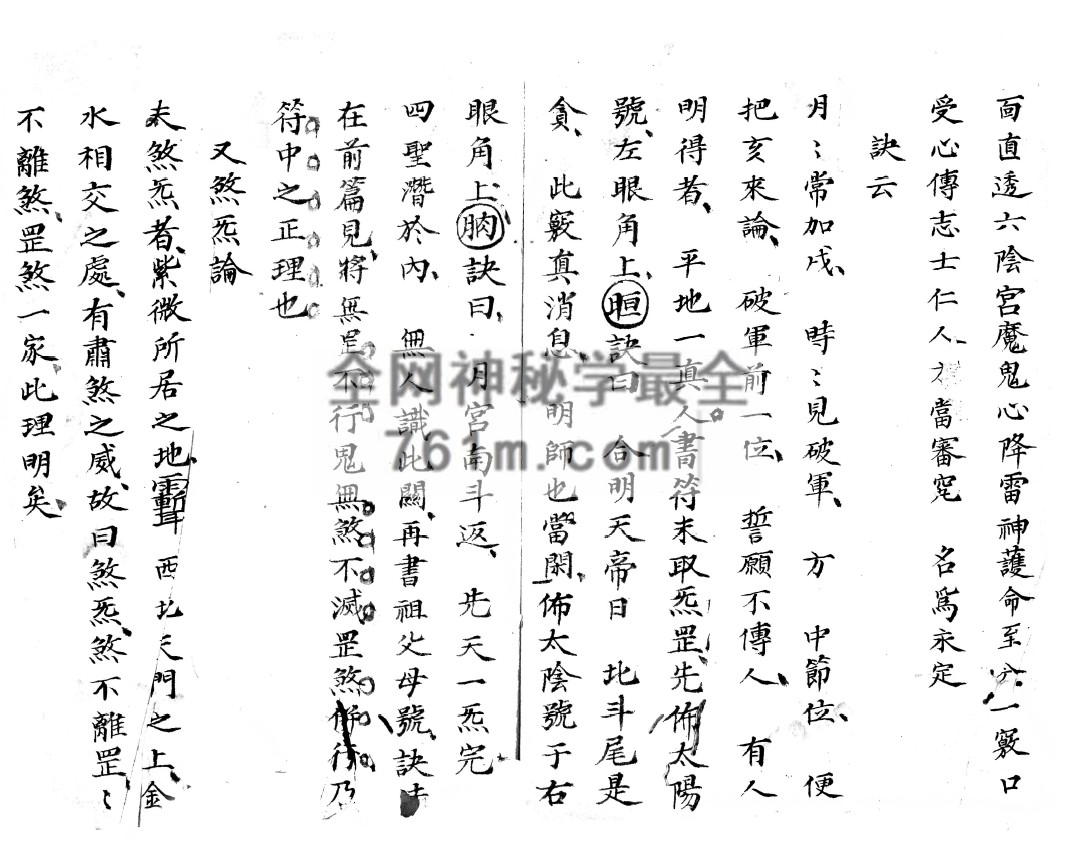 面直透六陰宮魔鬼心降雷神護命至六一竅口
受心傳志士仁人才當審定 名為永定
訣云
月〻常加戌、 時〻見破軍、 方 中節位、 便
把亥來論、 破軍前一位、 誓願不傳人、 有人
明得者、 平地一真人書符末取炁罡、先佈太陽
號、左眼角上、訣曰 合明天帝日 北斗尾是
貪、 此竅真消息、明師也當閑、佈太陰號于右
眼角上、訣曰、 月宮南斗返、 先天一炁完
四聖潛於內、 無人識此關、再書祖父母號、訣
在前篇見、將無罡不行鬼無煞不滅罡煞 行、乃
符中之正理也
又煞炁論
夫煞炁者、紫微所居之地、西北天門之上、金
水相交之處、有肅煞之威、故曰煞炁、煞不離罡、〻
不離煞、罡煞一家、此理明矣、
全网神秘学最全
761m.com